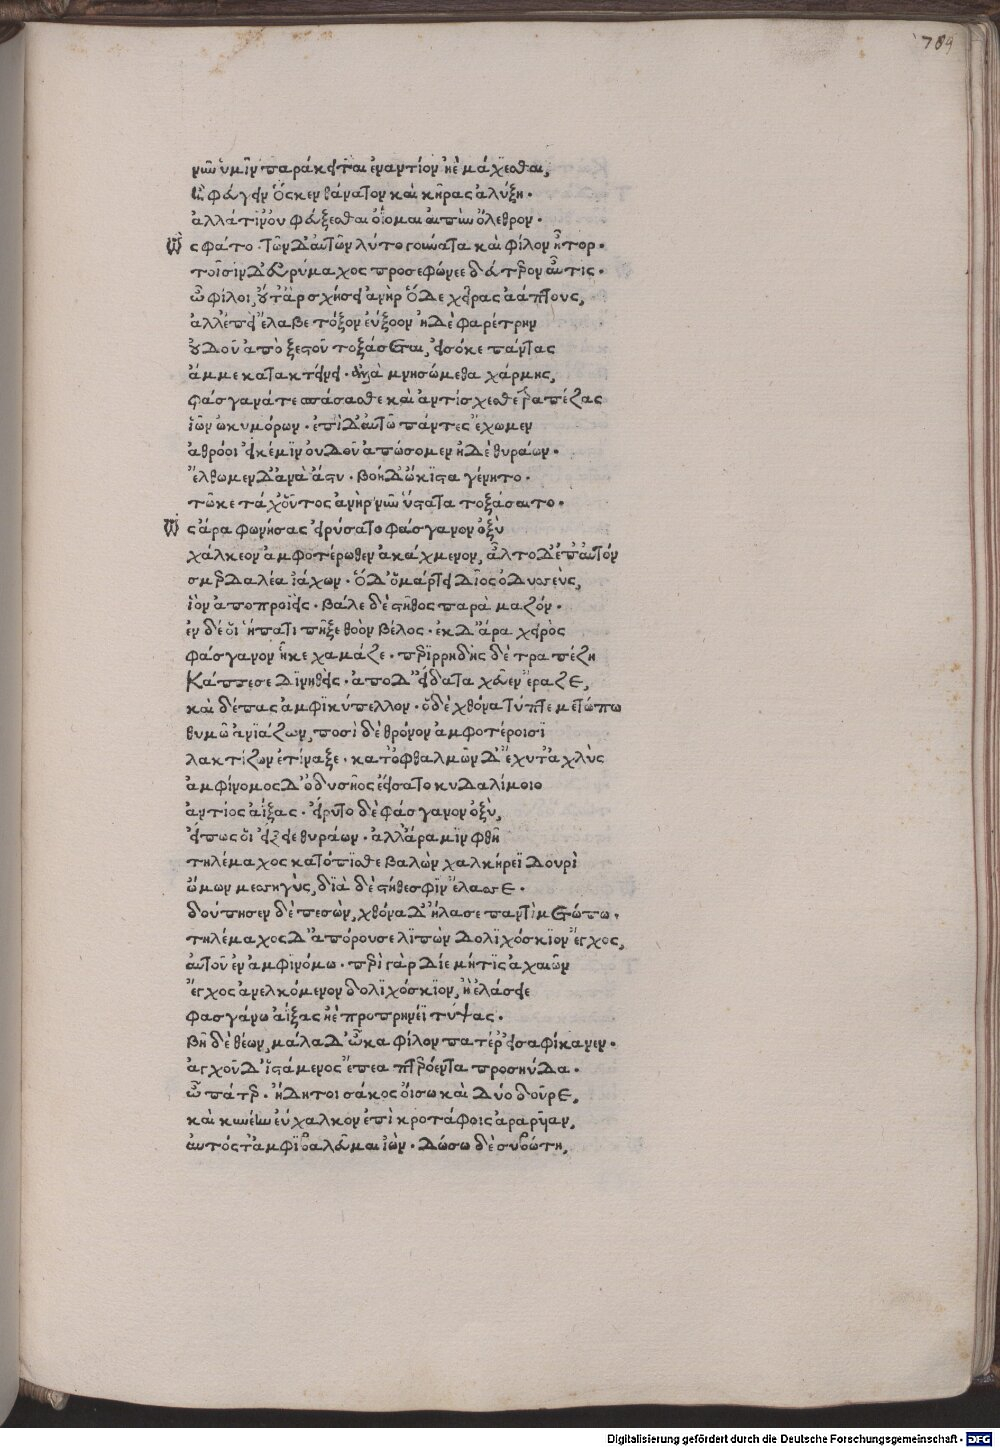 789
νῦν ὑμῖν παράκειται ἐναντίον ἠὲ μάχεσθαι,
ἢ φεύγειν ὅς κεν θάνατον καὶ κῆρας ἀλύξῃ.
ἀλλά τιν' οὐ φεύξεσθαι ὀΐομαι αἰπὺν ὄλεθρον.
ὣς φάτο. τῶν δ' αὐτοῦ λύτο γούνατα καὶ φίλον ἦτορ.
τοῖσιν δ' εὐρύμαχος προσεφώνεε δεύτερον αὖτις.
ὦ φίλοι, οὐ γὰρ σχήσει ἀνὴρ ὅδε χεῖρας ἀάπτους,
ἀλλ' ἐπεὶ ἔλαβε τόξον ἐύξοον ἠδὲ φαρέτρην
οὐδοῦ ἀπὸ ξεστοῦ τοξάσεται, εἰσόκε πάντας
ἄμμε κατακτείνει. ἀλλὰ μνησώμεθα χάρμης,
φάσγανά τε σπάσασθε καὶ ἀντίσχεσθε τραπέζας
ἰῶν ὠκυμόρων. ἐπὶ δ' αὐτῷ πάντες ἔχωμεν
ἀθρόοι εἴ κέ μιν οὐδοῦ ἀπώσομεν ἠδὲ θυράων.
ἔλθωμεν δ' ἀνὰ ἄστυ. βοὴ δ' ὤκιστα γένητο.
τῷ κε τάχ' οὗτος ἀνὴρ νῦν ὕστατα τοξάσαιτο.
ὣς ἄρα φωνήσας εἰρύσατο φάσγανον ὀξὺ
χάλκεον ἀμφοτέρωθεν ἀκάχμενον, ἆλτο δ' ἐπ' αὐτὸν
σμερδαλέα ἰάχων. ὁ δ' ὁμαρτῇ δῖος ὀδυσσεὺς,
ἰὸν ἀποπροϊείς. βάλε δὲ στῆθος παρὰ μαζόν.
ἐν δέ οἱ ἥπατι πῆξε θοὸν βέλος. ἐκ δ' ἄρα χειρὸς
φάσγανον ἧκε χαμάζε. περιρρηδὴς δὲ τραπέζῃ
κάππεσε δινηθείς. ἀπὸ δ' εἴδατα χεῦεν ἔραζε,
καὶ δέπας ἀμφικύπελλον. ὁ δὲ χθόνα τύπτε μετώπῳ
θυμῷ ἀνιάζων, ποσὶ δὲ θρόνον ἀμφοτέροισι
λακτίζων ἐτίναξε. κατ' ὀφθαλμῶν δ' ἔχυτ' ἀχλύς
ἀμφίνομος δ' ὀδυσῆος ἐείσατο κυδαλίμοιο
ἀντίος ἀΐξας. εἴρυτο δὲ φάσγανον ὀξὺ,
εἴ πως οἱ εἴξειε θυράων. ἀλλ' ἄρα μιν φθῆ
τηλέμαχος κατόπισθε βαλὼν χαλκήρεϊ δουρὶ
ὤμων μεσσηγὺς, διὰ δὲ στήθεσφιν ἔλασσε.
δούπησεν δὲ πεσὼν, χθόνα δ' ἤλασε παντὶ μετώπῳ.
τηλέμαχος δ' ἀπόρουσε λιπὼν δολιχόσκιον ἔγχος,
αὐτοῦ ἐν ἀμφινόμῳ. περὶ γὰρ δίε μή τις ἀχαιῶν
ἔγχος ἀνελκόμενον δολιχόσκιον, ἢ ἐλάσειε
φασγάνῳ ἀΐξας ἠὲ προπρηνέϊ τύψας.
βῆ δὲ θέων, μάλα δ' ὦκα φίλον πατέρ' εἰσαφίκανεν.
ἀγχοῦ δ' ἱστάμενος ἔπεα πτερόεντα προσηύδα.
ὦ πάτερ. ἤδη τοι σάκος οἴσω καὶ δύο δοῦρε,
καὶ κυνέην εὔχαλκον ἐπὶ κροτάφοις ἀραρυῖαν,
αὐτός τ' ἀμφιβαλεῦμαι ἰών. δώσω δὲ συβώτῃ,
Digitalisierung gefördert durch die Deutsche Forschungsgemeinschaft - DFG